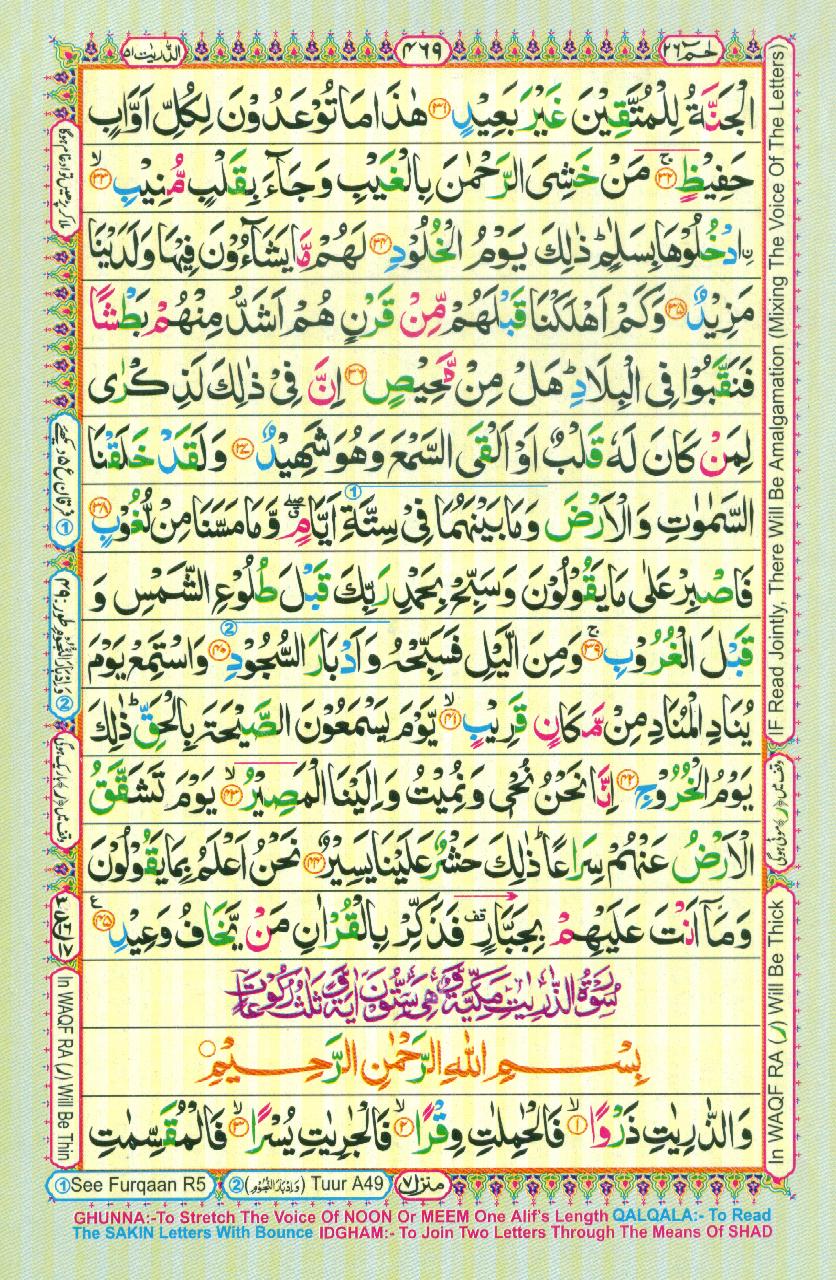 الذريت ٥١
٤٦٩
حم ٢٦
الْجَنَّةُ لِلْمُتَّقِيْنَ غَيْرَ بَعِيْدٍ ﴿٣١﴾ هٰذَا مَا تُوْعَدُوْنَ لِكُلِّ اَوَّابٍ
حَفِيْظٍ ﴿٣٢﴾ۚ مَنْ خَشِيَ الرَّحْمٰنَ بِالْغَيْبِ وَجَآءَ بِقَلْبٍ مُّنِيْبِ ﴿٣٣﴾ۙ
ۣادْخُلُوْهَا بِسَلٰمٍ ؕ ذٰلِكَ يَوْمُ الْخُلُوْدِ ﴿٣٤﴾ لَهُمْ مَّا يَشَآءُوْنَ فِيْهَا وَلَدَيْنَا
مَزِيْدٌ ﴿٣٥﴾ وَكَمْ اَهْلَكْنَا قَبْلَهُمْ مِّنْ قَرْنٍ هُمْ اَشَدُّ مِنْهُمْ بَطْشًا
فَنَقَّبُوْا فِي الْبِلَادِ ؕ هَلْ مِنْ مَّحِيْصٍ ﴿٣٦﴾ اِنَّ فِيْ ذٰلِكَ لَذِكْرٰى
لِمَنْ كَانَ لَهٗ قَلْبٌ اَوْ اَلْقَى السَّمْعَ وَهُوَ شَهِيْدٌ ﴿٣٧﴾ وَلَقَدْ خَلَقْنَا
السَّمٰوٰتِ وَالْاَرْضَ وَمَا بَيْنَهُمَا فِيْ سِتَّةِ اَيَّامٍ ۖق وَّمَا مَسَّنَا مِنْ لُّغُوْبٍ ﴿٣٨﴾
①
فَاصْبِرْ عَلٰى مَا يَقُوْلُوْنَ وَسَبِّحْ بِحَمْدِ رَبِّكَ قَبْلَ طُلُوْعِ الشَّمْسِ وَ
قَبْلَ الْغُرُوْبِ ﴿٣٩﴾ۚ وَمِنَ الَّيْلِ فَسَبِّحْهُ وَاَدْبَارَ السُّجُوْدِ ﴿٤٠﴾ وَاسْتَمِعْ يَوْمَ
②
يُنَادِ الْمُنَادِ مِنْ مَّكَانٍ قَرِيْبٍ ﴿٤١﴾ۙ يَّوْمَ يَسْمَعُوْنَ الصَّيْحَةَ بِالْحَقِّ ؕ ذٰلِكَ
يَوْمُ الْخُرُوْجِ ﴿٤٢﴾ اِنَّا نَحْنُ نُحْيٖ وَنُمِيْتُ وَاِلَيْنَا الْمَصِيْرُ ﴿٤٣﴾ۙ يَوْمَ تَشَقَّقُ
الْاَرْضُ عَنْهُمْ سِرَاعًا ؕ ذٰلِكَ حَشْرٌ عَلَيْنَا يَسِيْرٌ ﴿٤٤﴾ نَحْنُ اَعْلَمُ بِمَا يَقُوْلُوْنَ
وَمَآ اَنْتَ عَلَيْهِمْ بِجَبَّارٍ قف فَذَكِّرْ بِالْقُرْاٰنِ مَنْ يَّخَافُ وَعِيْدِ ﴿٤٥﴾ ع
سُوْرَةُ الذّٰرِيٰتِ مَكِّيَّةٌ وَّهِيَ سِتُّوْنَ اٰيَةً وَّثَلٰثُ رُكُوْعَاتٍ
بِسْمِ اللّٰهِ الرَّحْمٰنِ الرَّحِيْمِ
وَالذّٰرِيٰتِ ذَرْوًا ﴿١﴾ۙ فَالْحٰمِلٰتِ وِقْرًا ﴿٢﴾ۙ فَالْجٰرِيٰتِ يُسْرًا ﴿٣﴾ۙ فَالْمُقَسِّمٰتِ
IF Read Jointly, There Will Be Amalgamation (Mixing The Voice Of The Letters)
وقف میں (ر) موٹی ہوگی
In WAQF RA (ر) Will Be Thick
ملا کر پڑھیں تو ادغام ہوگا
① فرقان ع ۵ دیکھئے
② وَاِدْبَارَ النُّجُوْمِ طور: ٤٩
وقف میں (ر) باریک ہوگی
In WAQF RA (ر) Will Be Thin
① See Furqaan R5
② (وَاِدْبَارَ النُّجُوْمِ) Tuur A49
منزل ٧
GHUNNA:-To Stretch The Voice Of NOON Or MEEM One Alif's Length QALQALA:- To Read
The SAKIN Letters With Bounce IDGHAM:- To Join Two Letters Through The Means Of SHAD